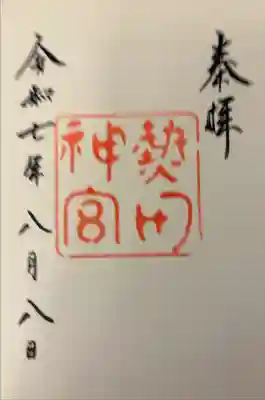 奉拝
熱田
神宮
令和七年八月八日